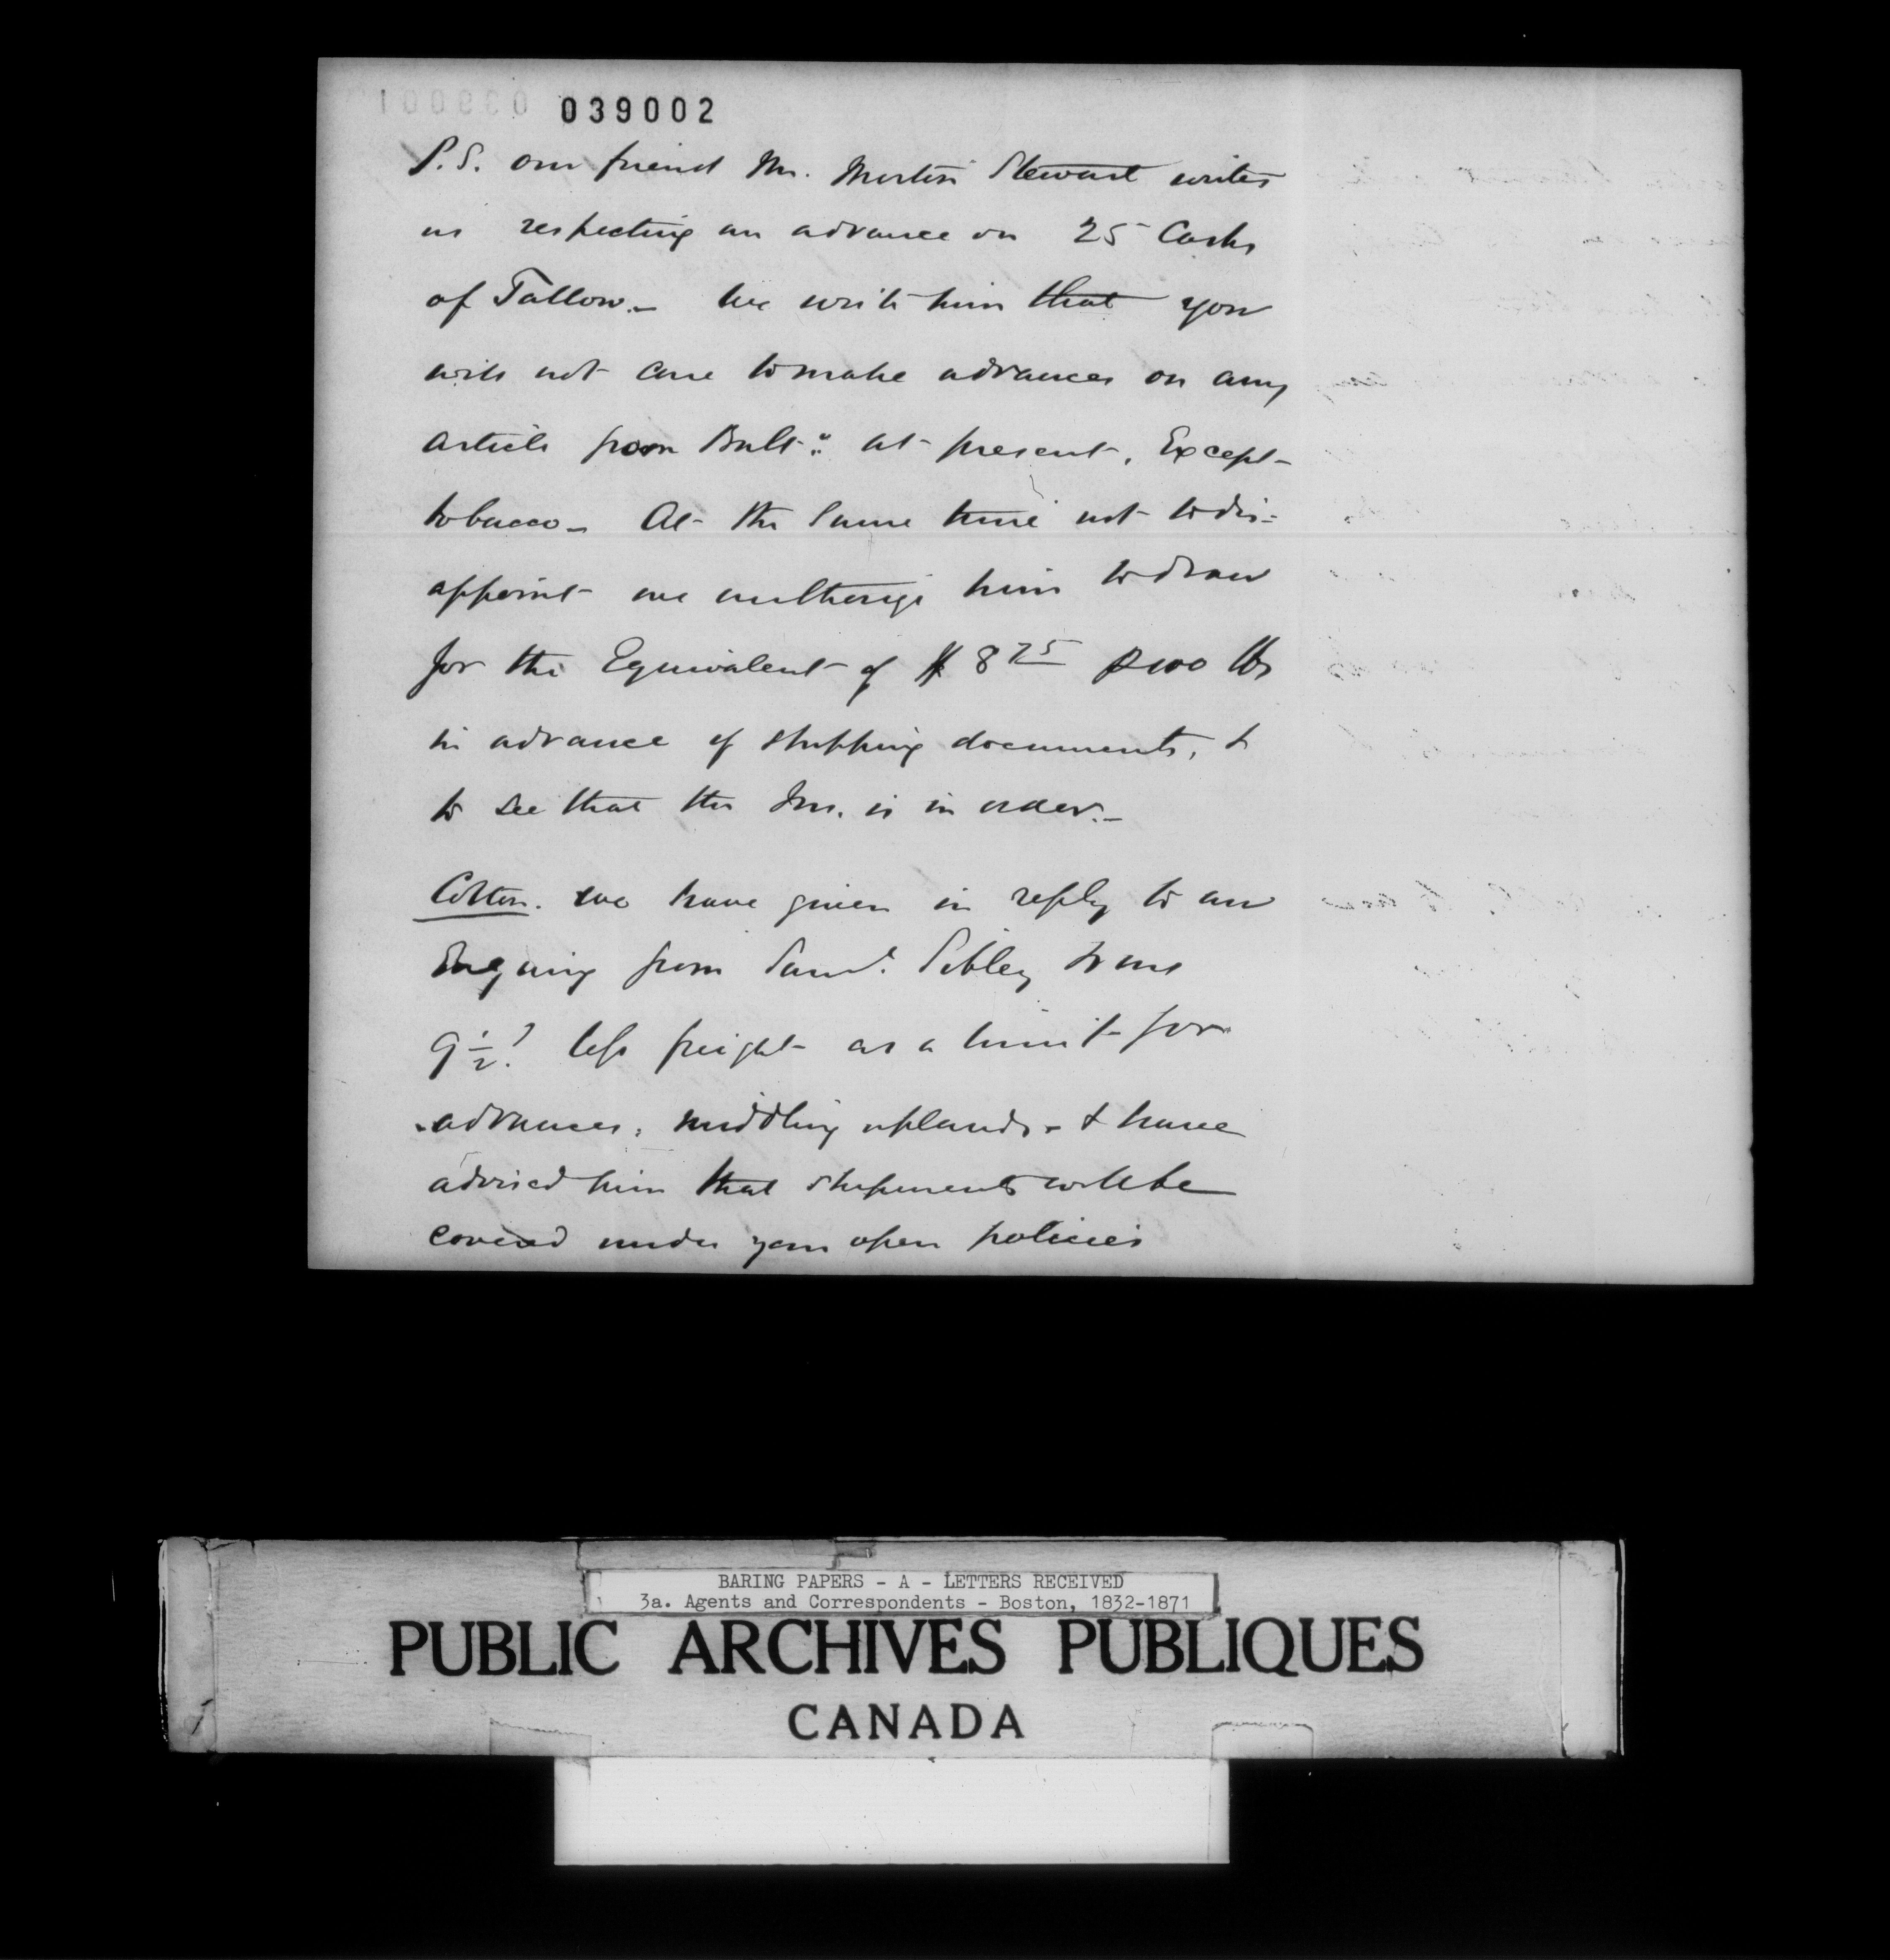 039002
P.S. our friend Mr. Morton Stewart writes
us respecting an advance on 25 Casks
of Tallow._ We write him that you
will not care to make advances on any
article from Balt.o at present, Except
tobacco_ At the same time not to dis-
appoint we authorize him to draw
for the Equivalent of $ 8 75 ⅌ 100 lbs
in advance of shipping documents, &
to see that the Ins. is in order._
Cotton. we have given in reply to an
Enquiry from Saml. Sibley & Sons
9 1/2 d less freight as a limit for
advances, middling uplands. & have
advised him that shipments will be
covered under your open policies
BARING PAPERS - A - LETTERS RECEIVED
3a. Agents and Correspondents - Boston, 1832-1871
PUBLIC ARCHIVES PUBLIQUES
CANADA